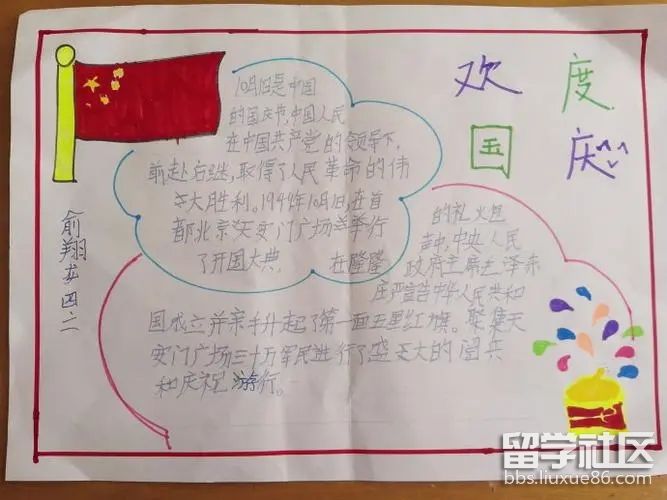 欢度
国庆
10月1日是中国
的国庆节,中国人民
在中国共产党的领导下,
前赴后继,取得了人民革命的伟
大胜利。1949年10月1日,在首
都北京天安门广场举行
了开国大典,在隆隆
的礼火包
声中,中央人民
政府主席毛泽东
庄严宣告中华人民共和
国成立并亲手升起了第一面五星红旗。聚集天
安门广场三十万军民进行了盛大的阅兵
和庆祝游行。
俞翔
四二
留学社区
bbs.liuxue86.com